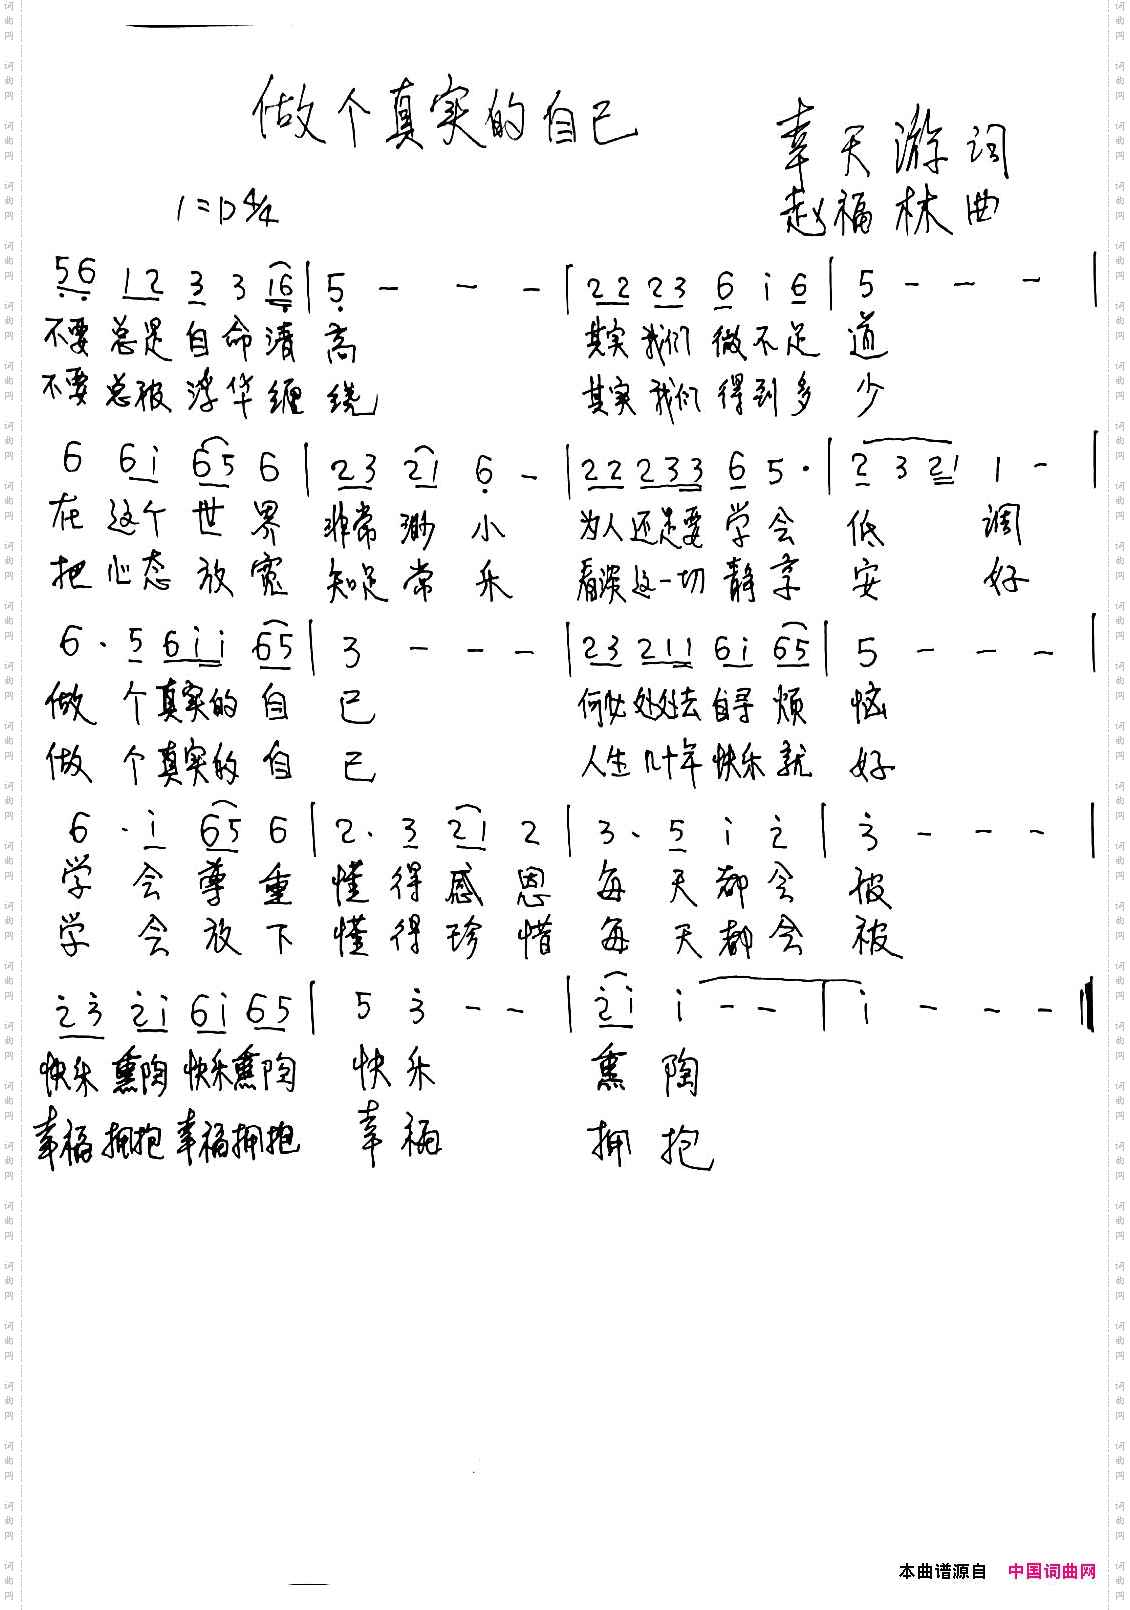 做个真实的自己
幸天游词
1=D 4/4
赵福林曲
56 12 3 3 16 | 5 - - - | 22 23 6 i 6 | 5 - - - |
不要 总是 自命清 高 其实 我们 微不足 道
不要 总被 浮华缠 绕 其实 我们 得到多 少
6 6i 65 6 | 23 21 6 - | 22 233 6 5· | 2 3 21 1 - |
在 这个 世 界 非常 渺 小 为人 还是要 学 会 低 调
把 心态 放 宽 知足 常 乐 看淡 这一切 静 享 安 好
6· 5 6ii 65 | 3 - - - | 23 211 6i 65 | 5 - - - |
做 个 真实的 自 己 何必 处处去 自寻 烦 恼
做 个 真实的 自 己 人生 几十年 快乐 就 好
6· i 65 6 | 2· 3 21 2 | 3· 5 i 2 | 3 - - - |
学 会 尊 重 懂 得 感 恩 每 天 都 会 被
学 会 放 下 懂 得 珍 惜 每 天 都 会 被
23 2i 6i 65 | 5 3 - - | 2i i - - | i - - - ‖
快乐 熏陶 快乐 熏陶 快 乐 熏 陶
幸福 拥抱 幸福 拥抱 幸 福 拥 抱
本曲谱源自 中国词曲网